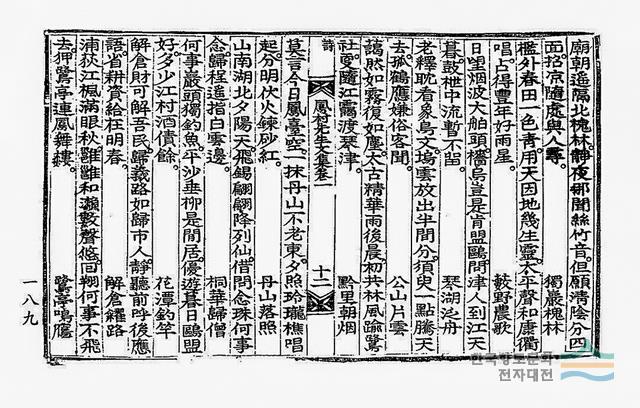 廟朝遙隔北槐林靜夜那聞絲竹音但願淸陰分四
面招凉隨處與人尋 獨嚴槐林
檻外春田一色靑用天因地幾生靈太平聲和康衢
唱占得豊年好雨星 藪野農歌
日望烟波大舶頭檣烏豈是肯盟鷗問津人到江天
暮鼓枻中流暫不留 琴湖泛舟
老釋耽看象鳥文塢雲放出半間分須臾一點騰天
去孤鶴應嫌俗客聞 公山片雲
藹然如霧復如塵太古精華雨後晨初共林風踰鷲
社更隨江靄渡琴津 黔里朝烟
詩 鳳村先生文集卷一 十二
莫言今日鳳臺空一抹丹山不老東夕照玲瓏樵唱
起分明伏火鍊砂紅 丹山落照
山南湖北夕陽天飛錫翩翩降列仙借問念珠何事
念歸程遙指白雲邊 桐華歸僧
何事嚴頭獨釣魚平沙垂柳是閒居優遊暮日鷗盟
好多少江村酒債餘 花潭釣竿
解倉財可解吾民歸義路如歸市人靜聽前呼後應
語省耕資給在明春 解倉糴路
浦荻江楓滿眼秋雝雝和瀨數聲悠回翔何事不飛
去押鷺亭連鳳舞樓 鷺亭鳴鴈
一八九
한국향토문화
전자대전